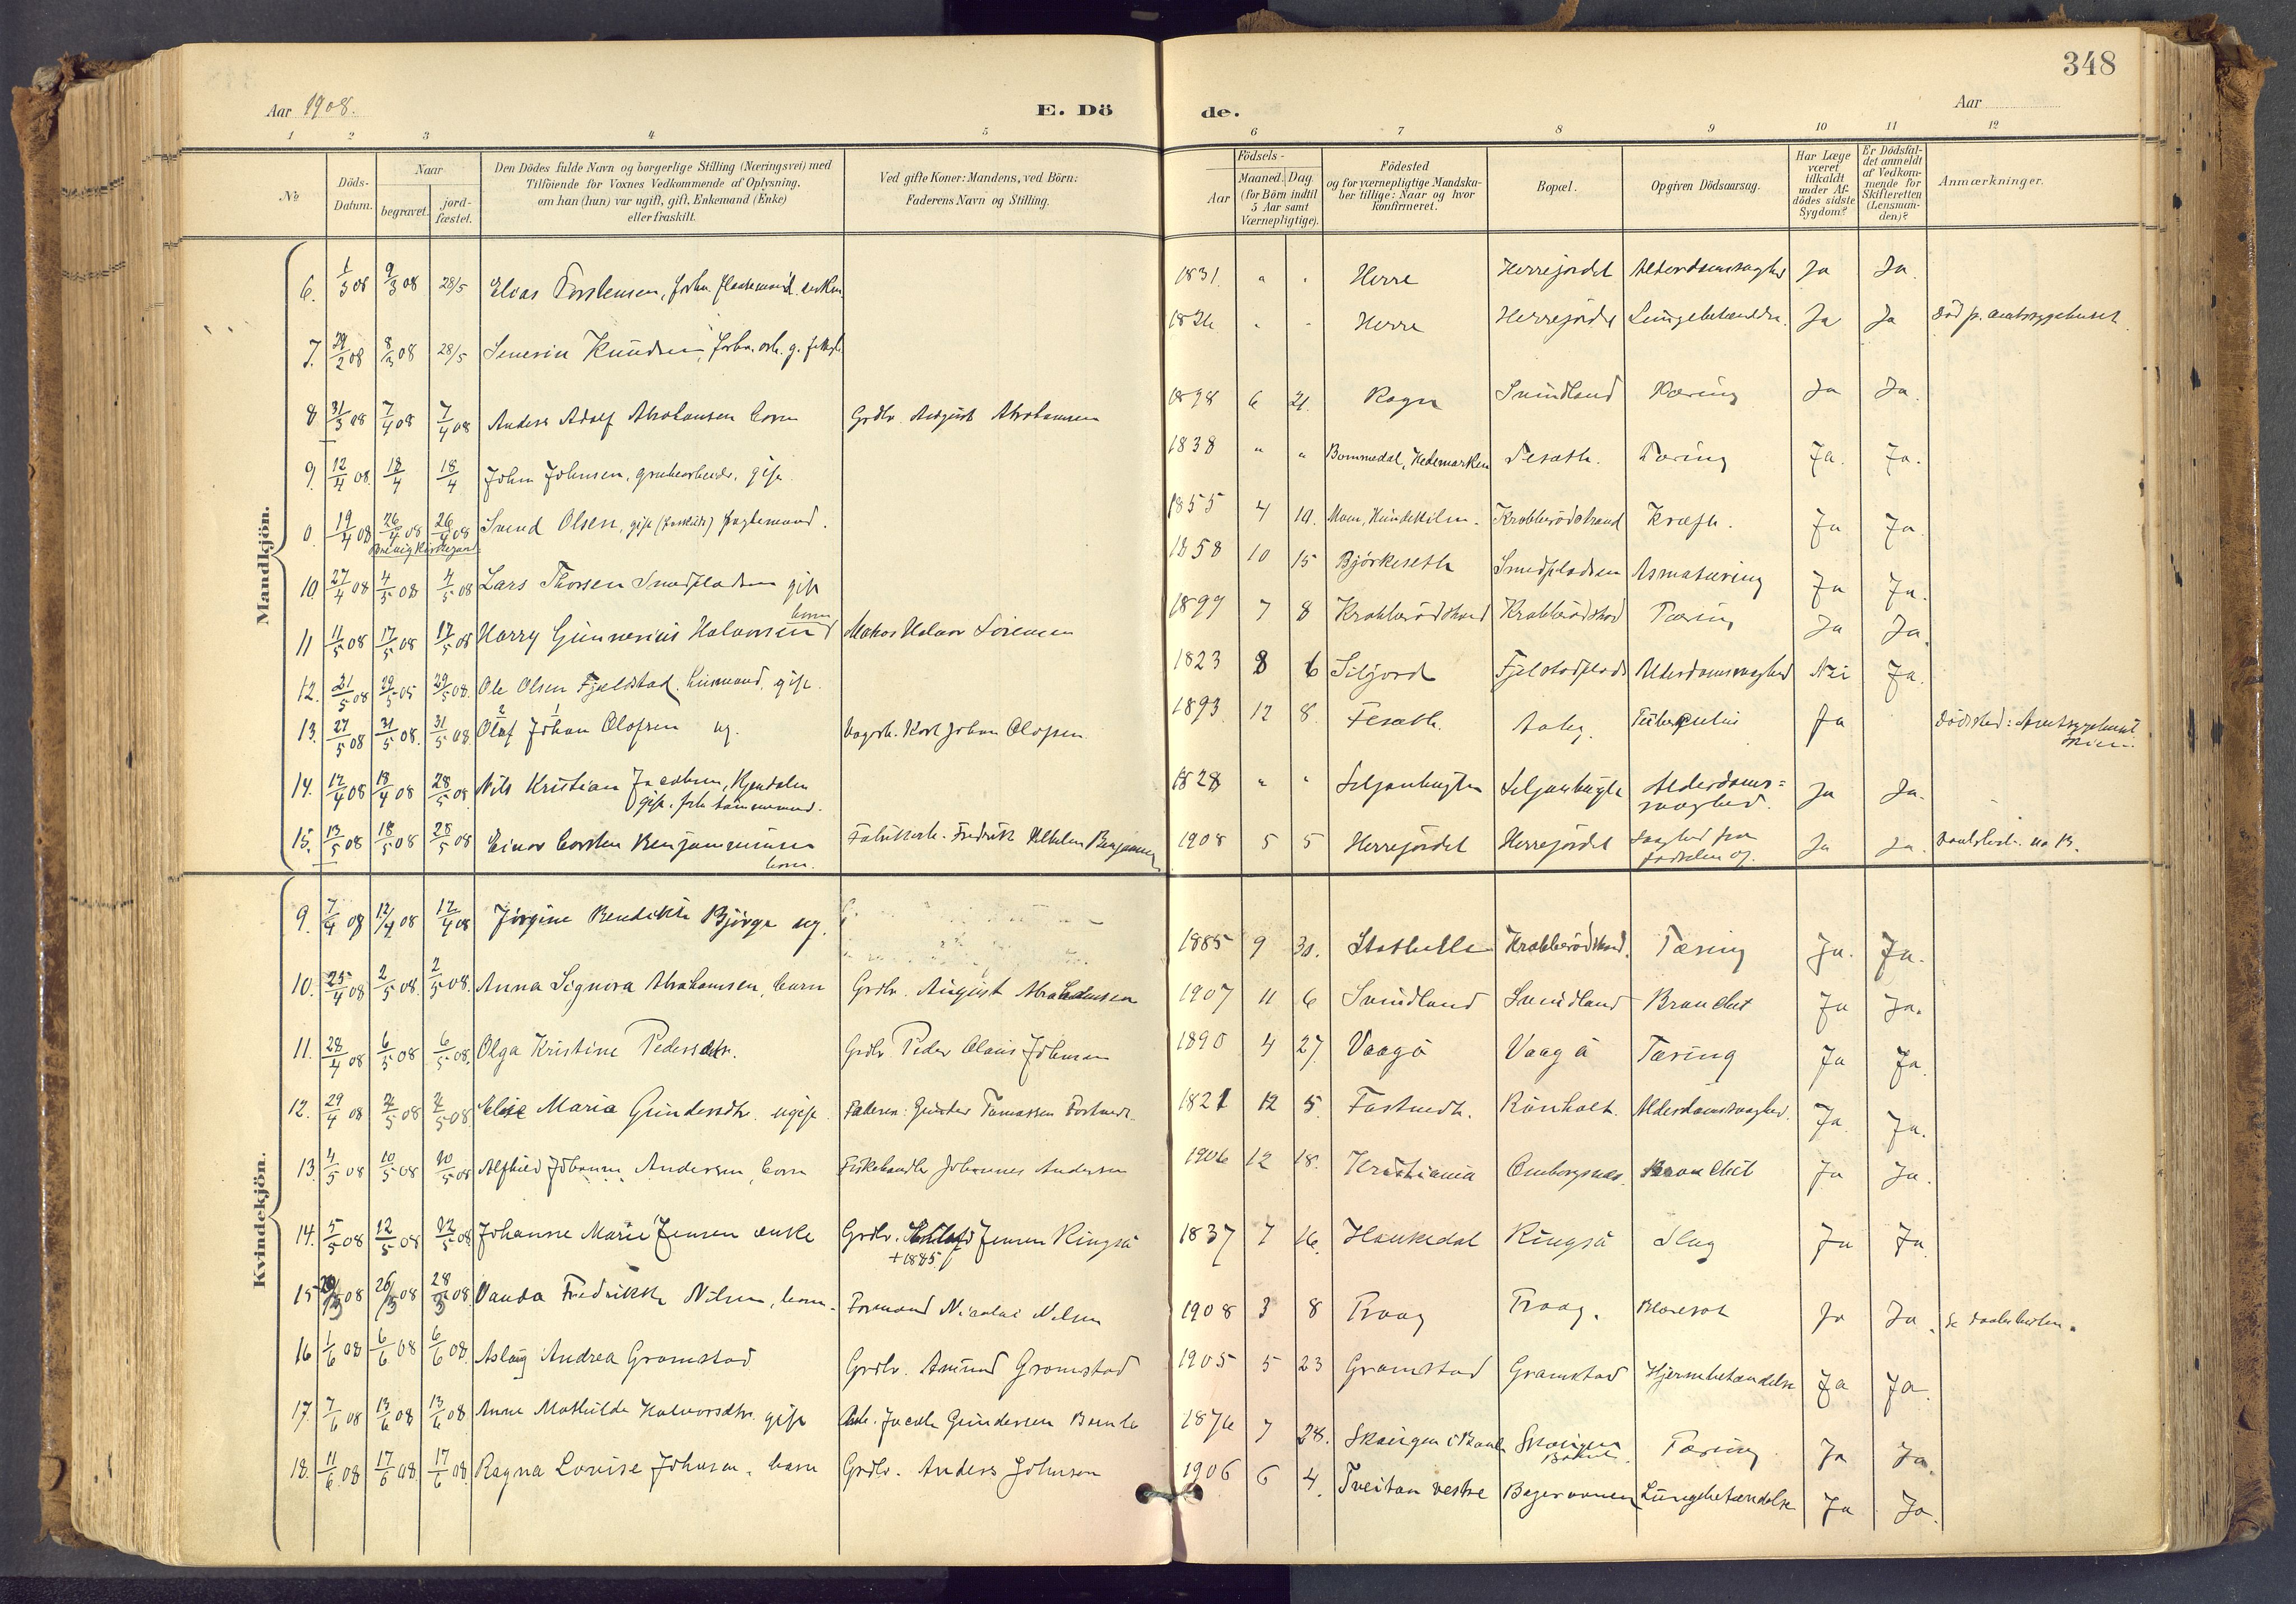 348
Aar 1908.
E. Dö
de.
Aar
1 2 3 4 5 6 7 8 9 10 11 12
No
Döds-
Datum.
Naar
begravet.
jord-
fæstet.
Den Dödes fulde Navn og borgerlige Stilling (Næringsvei) med
Tilföiende for Voxnes Vedkommende af Oplysning,
om han (hun) var ugift, gift, Enkemand (Enke)
eller fraskilt.
Ved gifte Koner: Mandens, ved Börn:
Faderens Navn og Stilling.
Födsels-
Aar
Maaned. Dag.
(for Börn indtil
5 Aar samt
Værnepligtige).
Födested
og for værnepligtige Mandska-
ber tillige: Naar og hvor
konfirmeret.
Bopæl.
Opgiven Dödsaarsag.
Har Læge
været
tilkaldt
under Af-
dödes sidste
Sygdom?
Er Dödsfal-
det anmeldt
af Vedkom-
mende for
Skifteretten
(Lensman-
den)?
Anmærkninger.
Mandkjön.
6. 1/3 08 9/3 08 28/5 Elias Torstensen, 1831 " " Herre Herrejordet Alderdomssvaghed Ja Ja.
7. 29/2 08 8/3 08 28/5 Severin Knudsen, Herre Herrejordet Lungebetændelse Ja Ja Död p. amtssygehuset.
8 31/3 08 7/4 08 7/4 08 Anders Adolf Abrahamsen barn Grdbr. August Abrahamsen 1898 6 21. Ragn Svindland Tæring Ja Ja.
9. 12/4 08. 18/4 18/4 John Johnsen, grubearbeider, gift 1838 " " Bommedal, Hedemarken Tesæth. Tæring Ja. Ja.
0. 19/4 08 26/4 08 26/4 08 Svend Olsen, gift (fraskilt) 1855 4 10. Krabberödstrand Kræft. Ja Ja.
10. 27/4 08 4/5 08 4/5 08 Lars Thorsen Smedpladsen gift 1858 10 15 Björkeseth Smedpladsen Ja Ja.
11 11/5 08 17/5 08 17/5 08 Harry Gunnerius Halvorsen barn Matros Halvor Sörensen 1899 7 8 Krabberödstrand Krabberödstrand Tæring Ja Ja.
12. 21/5 08 29/5 05 29/5 08. Ole Olsen Fjeldstad, gift. 1823 8 6 Siljord Alderdomssvaghed Nei Ja.
13. 27/5 08 31/5 08. 31/5 08. Olaf Johan Olafsen ug. Karl Johan Olafsen 1893 12 8. Tesæth. Aaby. Tuberkulös Ja Dödsted: Amtssygehuset Skien.
14. 12/4 08 18/4 08 28/5 08. Nils Kristian Jacobsen, gift. fhv. tömmermand. 1828 " " Seljambugten Alderdoms=
svaghed. Ja Ja.
15. 13/5 08 18/5 08 28/5 08 Einar Torsten Benjaminsen barn. Fabrikarb. Fredrik Vilhelm Benjaminsen 1908 5 5 Herrejordet Herrejordet Svaghed fra
födselen af. Ja Ja.
Kvindekjön.
9. 7/4 08 12/4 08 12/4 08 Jörgine Bendikte Björge ug. 1885 9 30. Stathelle Krabberödstrand. Tæring Ja. Ja.
10. 25/4 08 2/5 08. 2/5 08. Anna Signora Abrahamsen, barn Grdbr. August Abrahamsen 1907 11 6 Svindland Svindland Bronchit Ja Ja.
11. 28/4 08 6/5 08 6/5 08. Olga Kristine Pedersdtr. Grdbr Peder Olaus Johnsen 1890 4 27. Vaagö Vaagö Tæring Ja Ja.
12. 29/4 08 2/5 08 2/5 08 Elise Maria Gundersdtr. ugift. Faderen: Gunder Tomassen Fostvedt. 1821 12 5. Fostvedt. Rönholt. Alderdomssvaghed. Ja Ja.
13. 4/5 08 10/5 08 10/5 08 Alfhild Johanne Andersen, barn Fiskehandler Johannes Andersen 1906 12 18. Kristiania Bronchit Ja Ja.
14. 5/5 08 12/5 08 12/5 08. Johanne Marie Jensen enke Grdbr. Jensen Ringsö
+1885 1837 7 16. Haukedal Ringsö Slag Ja Ja
15 08 26/3 08 28/3 08. Vanda Fredrikke Nilsen, barn. Formand Nicolai Nilsen 1908 3 8 Traag Traag. Ja Ja. Se daabslisten.
16 1/6 08 6/6 08 6/6 08. Aslaug Andrea Gromstad Grdbr. Amund Gromstad 1905 5 23 Gromstad Gromstad Hjernebetændelse Ja Ja.
17. 7/6 08 13/6 08 13/6 08 Anne Mathilde Halvorsdtr. gift Arb. Jacob Gundersen Bamle 1876 7 28. Skougen i Bamle Skougen
Bamle. Tæring Ja Ja.
18. 11/6 08 17/6 08. 17/6 08. Ragna Lovise Johnsen, barn Grdbr. Anders Johnson 1906 6 4. Tveitan vestre Lungebetændelse Ja Ja.